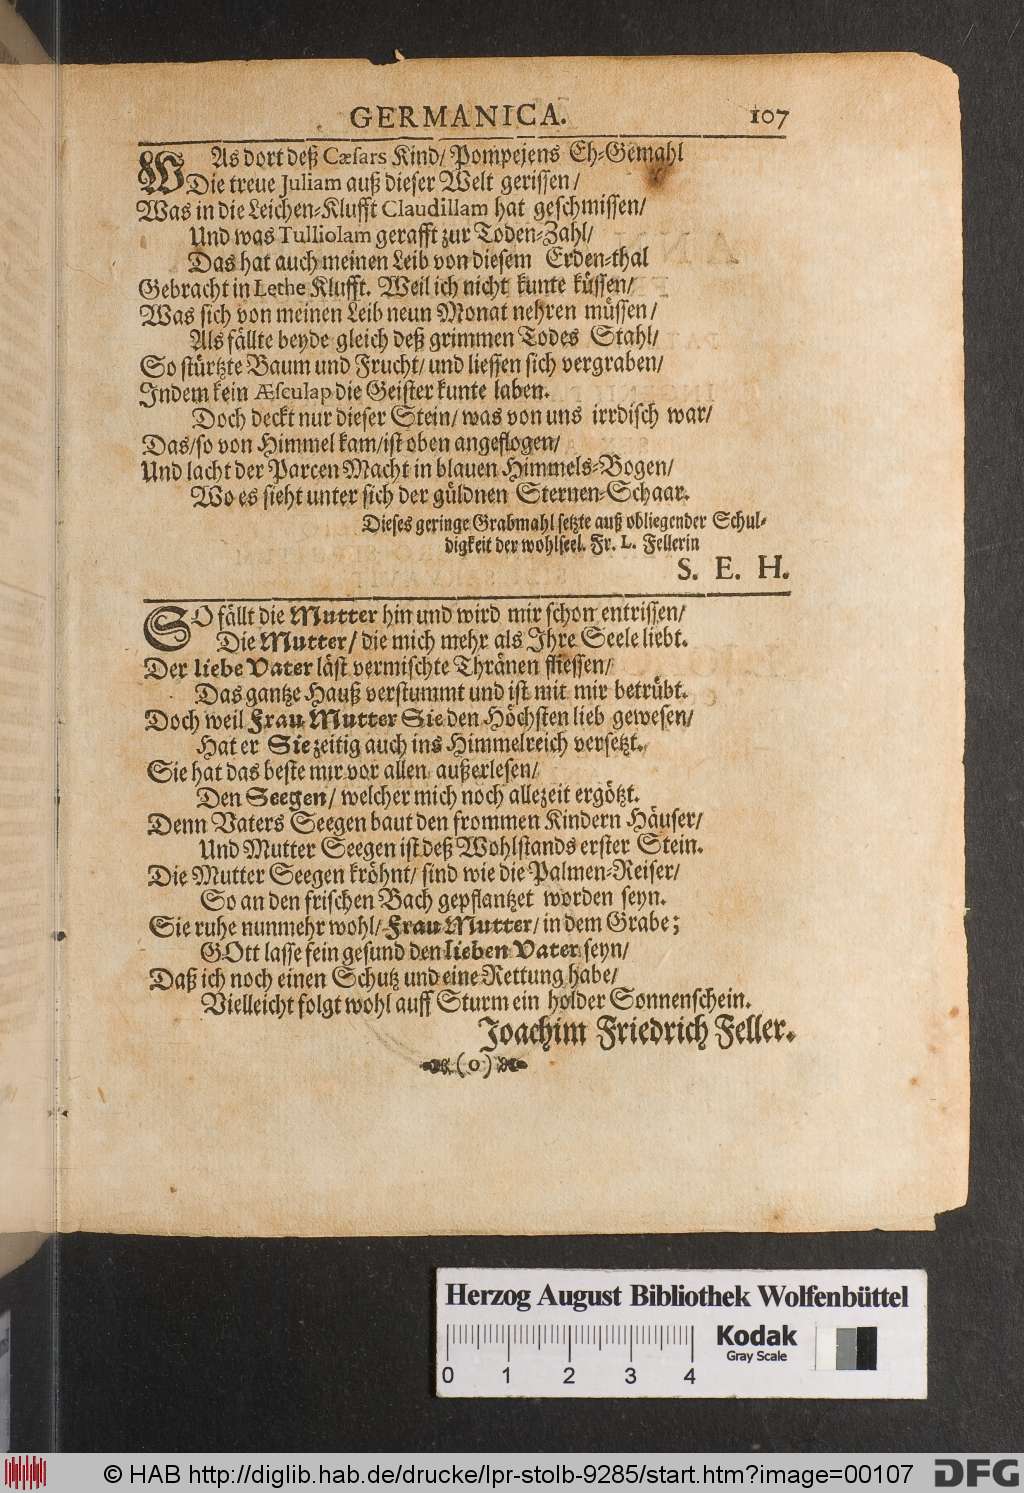 GERMANICA. 107
WAs dort deß Cæsars Kind/ Pompejens Eh-Gemahl
Die treue Juliam auß dieser Welt gerissen/
Was in die Leichen-Klufft Claudillam hat geschmissen/
Und was Tulliolam gerafft zur Toden-Zahl/
Das hat auch meinen Leib von diesem Erden-thal
Gebracht in Lethe Klufft. Weil ich nicht kunte küssen/
Was sich von meinen Leib neun Monat nehren müssen/
Als fällte beyde gleich deß grimmen Todes Stahl/
So stürtzte Baum und Frucht/ und liessen sich vergraben/
Indem kein Æsculap die Geister kunte laben.
Doch deckt nur dieser Stein/ was von uns irrdisch war/
Das/so von Himmel kam/ist oben angeflogen/
Und lacht der Parcen Macht in blauen Himmels-Bogen/
Wo es sieht unter sich der güldnen Sternen-Schaar.
Dieses geringe Grabmahl setzte auß obliegender Schul-
digkeit der wohlseel. Fr. L. Fellerin
S. E. H.
SO fällt die Mutter hin und wird mir schon entrissen/
Die Mutter/ die mich mehr als Ihre Seele liebt.
Der liebe Vater läst vermischte Thränen fliessen/
Das gantze Hauß verstummt und ist mit mir betrübt.
Doch weil Frau Mutter Sie den Höchsten lieb gewesen/
Hat er Sie zeitig auch ins Himmelreich versetzt.
Sie hat das beste mir vor allen außerlesen/
Den Seegen/ welcher mich noch allezeit ergötzt.
Denn Vaters Seegen baut den frommen Kindern Häuser/
Und Mutter Seegen ist deß Wohlstands erster Stein.
Die Mutter Seegen kröhnt/ sind wie die Palmen-Reiser/
So an den frischen Bach gepflantzet worden seyn.
Sie ruhe nunmehr wohl/ Frau Mutter/ in dem Grabe;
GOtt lasse fein gesund den lieben Vater seyn/
Daß ich noch einen Schutz und eine Rettung habe/
Vielleicht folgt wohl auff Sturm ein holder Sonnenschein.
Joachim Friedrich Feller.
(o)
Herzog August Bibliothek Wolfenbüttel
Kodak
Gray Scale
0 1 2 3 4
© HAB http://diglib.hab.de/drucke/lpr-stolb-9285/start.htm?image=00107
DFG